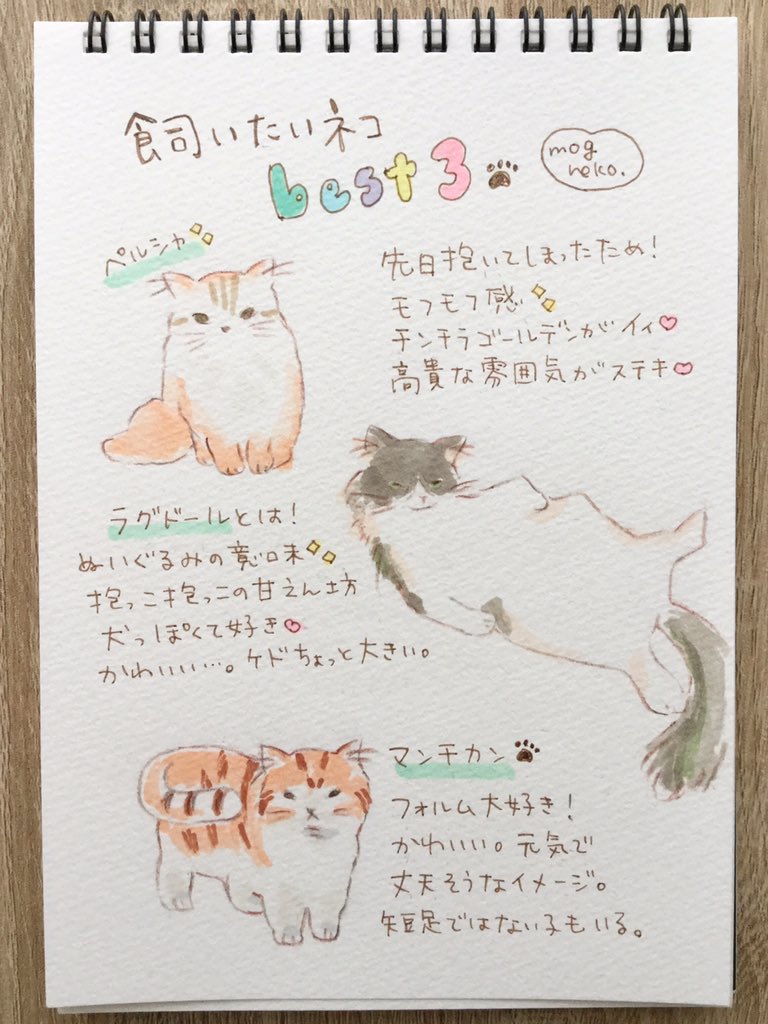 飼いたいネコ
best 3
mog
neko.
ペルシャ
先日抱いてしまったため！
モフモフ感
チンチラゴールデンがイイ
高貴な雰囲気がステキ
ラグドールとは！
ぬいぐるみの意味
抱っこ抱っこの甘えん坊
犬っぽくて好き
かわいい…。ケドちょっと大きい。
マンチカン
フォルム大好き！
かわいい。元気で
丈夫そうなイメージ。
短足ではない子もいる。